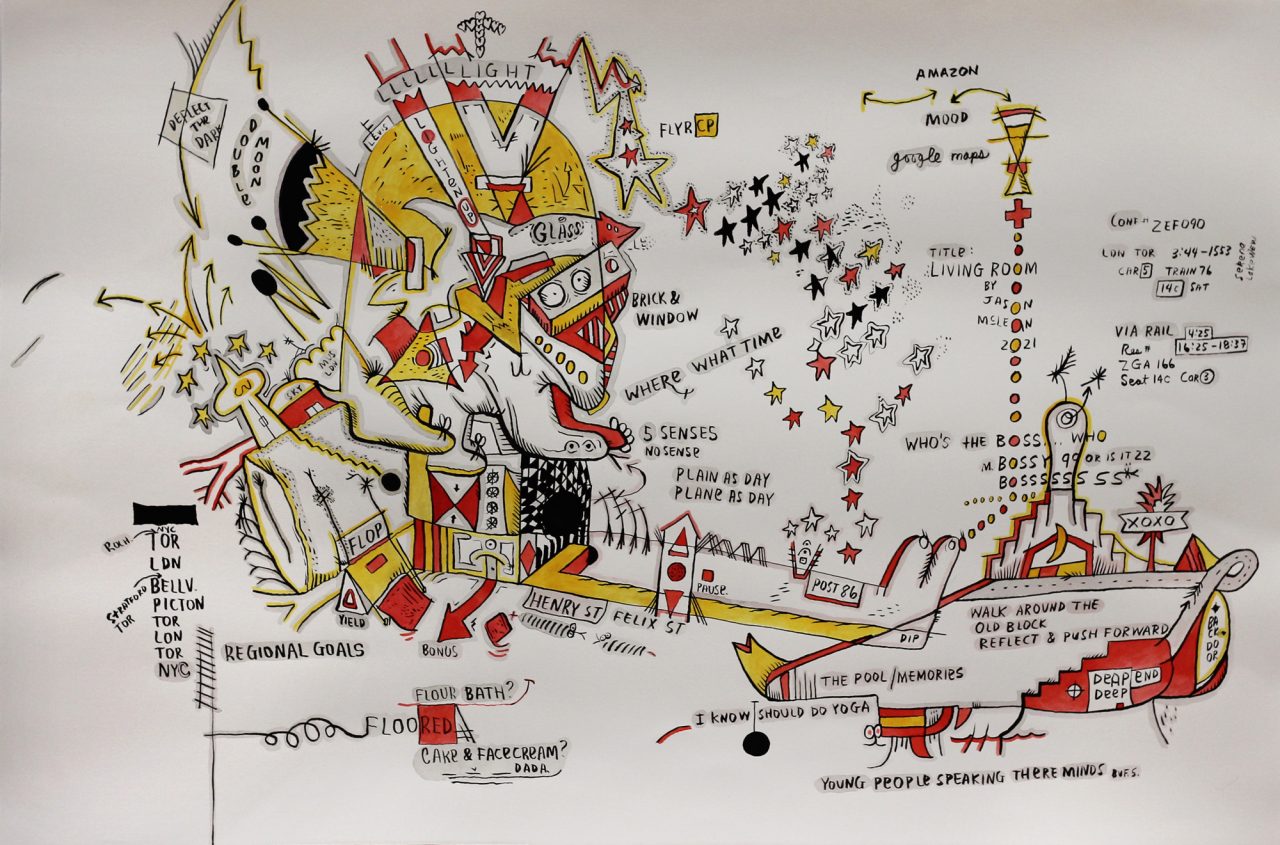 LLLLLLIGHT
DEFLECT
THE
DARK
DOUBLE
MOON
LIGHTEN UP
GLASS
FLYR CP
AMAZON
MOOD
google maps
TITLE:
LIVING ROOM
BY
JASON
MCLEAN
2021
CONF # ZEF090
LDN TOR 3:44-1553
CAR 5 TRAIN 76
14C SAT
VIA RAIL 4:25
Res # 16:25-18:37
ZGA 166
Seat 14C Car 3
BRICK &
WINDOW
WHERE WHAT TIME
5 SENSES
NO SENSE
PLAIN AS DAY
PLANE AS DAY
WHO'S THE BOSS... WHO
M. BOSSY 99 OR IS IT 22
BOSSSSSSSS*
XOXO
SKY
FLOP
YIELD
BONUS
HENRY ST
FELIX ST
PAUSE.
POST 86
DIP
WALK AROUND THE
OLD BLOCK
REFLECT & PUSH FORWARD
BACK DOOR
THE POOL/MEMORIES
DEAP END
DEEP
I KNOW I SHOULD DO YOGA
YOUNG PEOPLE SPEAKING THERE MINDS
NYC
TOR
LDN
STRATFORD
BELLV.
TOR
PICTON
TOR
LON
TOR
NYC
REGIONAL GOALS
FLOUR BATH?
FLOORED
CAKE & FACECREAM?
DADA.